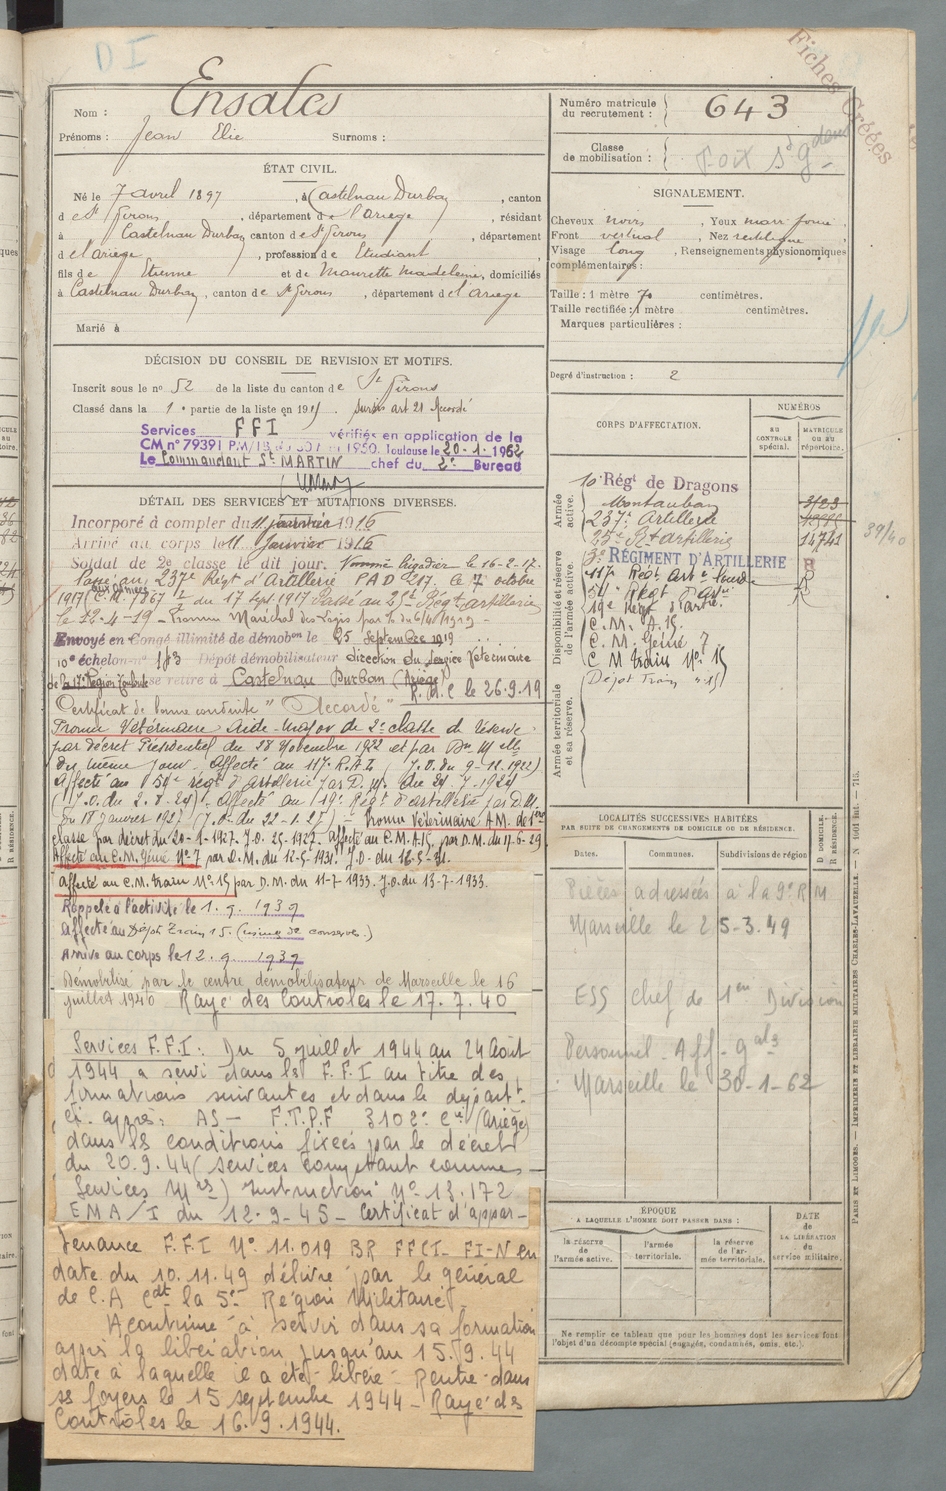 D I
Fiches Créées
Nom : Ensales
Prénoms : Jean Elie Surnoms :
ÉTAT CIVIL.
Né le 7 avril 1897, à Castelnau Durban, canton
de St Girons, département de l'ariège, résidant
à Castelnau Durban canton de St Girons, département
de l'ariège, profession de Etudiant,
fils de Etienne et de Maurette Madeleine, domiciliés
à Castelnau Durban, canton de St Girons, département de l'ariège
Marié à
DÉCISION DU CONSEIL DE REVISION ET MOTIFS.
Inscrit sous le no 52 de la liste du canton de St Girons
Classé dans la 1e partie de la liste en 191 . Sursis art 21 Accordé
Services FFI vérifiés en application de la
CM no 79391 1950. Toulouse le 20-1-1962
Le Commandant St MARTIN chef du 2e Bureau
DÉTAIL DES SERVICES ET MUTATIONS DIVERSES.
Incorporé à compter du 11 janvier 1916
Arrivé au corps le 11 Janvier 1916
Soldat de 2e classe le dit jour. Nommé brigadier le 16-2-17.
Passé au 237e Régt d'Artillerie P A D 217. le 7 octobre
1917 du 17 Sept 1917 Passé au 25e Régt artillerie
le 12-4-19 - Promu Maréchal des Logis
Envoyé en Congé illimité de démobon le 25 Septembre 1919
10e échelon no 183 Dépôt démobilisateur direction du Service Vétérinaire
de la 17e Région Toulouse se retire à Castelnau Durban (Ariège)
R. D. C le 26.9.19
Certificat de bonne conduite "Accordé"
Promu Vétérinaire Aide-Major de 2e classe de réserve
par décret Présidentiel du 28 Novembre 1922 et par
du même jour. Affecté au 117e R.A.L (J.O. du 9-11.1922)
Affecté au 54e régt d'artillerie par D.M. du 24.7.1924
(J.O. du 2.8.24). Affecté au 19e Régt d'artillerie par D.M.
du 18 janvier 1927 (J.O. du 22-1-27) - Promu Vétérinaire A.M. de 1ere
classe par décret du 20-1-1927. J.O. 25-1927. affecté au C.M.A.15, par D.M. du 17-6-29
Affecté au C.M. Génie No 7 par D.M. du 12-5-1931. J.O. du 16-5-31.
affecté au C.M. train No 15 par D.M. du 11-7-1933. J.O. du 13-7-1933.
Rappelé à l'activité le 1. 9. 1939
Affecté au Dépôt Train 15. (usine de conserves.)
Arrivé au corps le 12. 9. 1939
Démobilisé par le centre démobilisateur de Marseille le 16
juillet 1940 Rayé des Contrôles le 17. 7. 40
Services F.F.I : Du 5 juillet 1944 au 24 Août
1944 a servi dans les F.F.I au titre des
formations suivantes et dans le départ.t
ci. après: AS - F.T.P.F 3102e Cie (Ariège)
dans les conditions fixées par le décret
du 20.9.44 (services comptant comme
Services Mres) Instruction No 13.172
EMA/I du 12-9-45 - Certificat d'appar-
tenance F.F.I No 11.019 BR FFCI - FI-N en
date du 10.11.49 délivré par le général
de C.A Cdt la 5e Région Militaire.
A continué à servir dans sa formation
après la libération jusqu'au 15.9.44
date à laquelle il a été libéré - Rentré dans
ses foyers le 15 septembre 1944 - Rayé des
Contrôles le 16.9.1944.
Numéro matricule du recrutement : 643
Classe de mobilisation : Foix
SIGNALEMENT.
Cheveux noirs, Yeux marr foncé,
Front vertical, Nez rectiligne,
Visage long, Renseignements physionomiques
complémentaires :
Taille : 1 mètre 70 centimètres.
Taille rectifiée : 1 mètre centimètres.
Marques particulières :
Degré d'instruction : 2
CORPS D'AFFECTATION.
NUMÉROS
AU CONTRÔLE SPÉCIAL.
MATRICULE OU AU RÉPERTOIRE.
Armée active.
10e Régt de Dragons
Montauban
237e Artillerie
25e Rt artillerie 14741
39/40
Disponibilité et réserve de l'armée active.
3e RÉGIMENT D'ARTILLERIE
117e Régt Arte Lourde
54e Régt d'Artie
19e Régt d'artie.
C. M. A. 15.
C. M. Génie 7
C M train No 15
(Dépôt Train 15)
Armée territoriale et sa réserve.
LOCALITÉS SUCCESSIVES HABITÉES
PAR SUITE DE CHANGEMENTS DE DOMICILE OU DE RÉSIDENCE.
Dates. Communes. Subdivisions de région
D DOMICILE. R RÉSIDENCE.
Pièces adressées à la 9e R M
Marseille le 25-3.49
ESS chef de 1ere Division
Personnel - Aff. Gales
Marseille le 30-1-62
ÉPOQUE
A LAQUELLE L'HOMME DOIT PASSER DANS :
la réserve de l'armée active.
l'armée territoriale.
la réserve de l'armée territoriale.
DATE de LA LIBÉRATION du service militaire.
Ne remplir ce tableau que pour les hommes dont les services font
l'objet d'un décompte spécial (engagés, condamnés, omis, etc.).
PARIS ET LIMOGES. — IMPRIMERIE ET LIBRAIRIE MILITAIRES CHARLES-LAVAUZELLE. — N 1001 Bat. — 715.